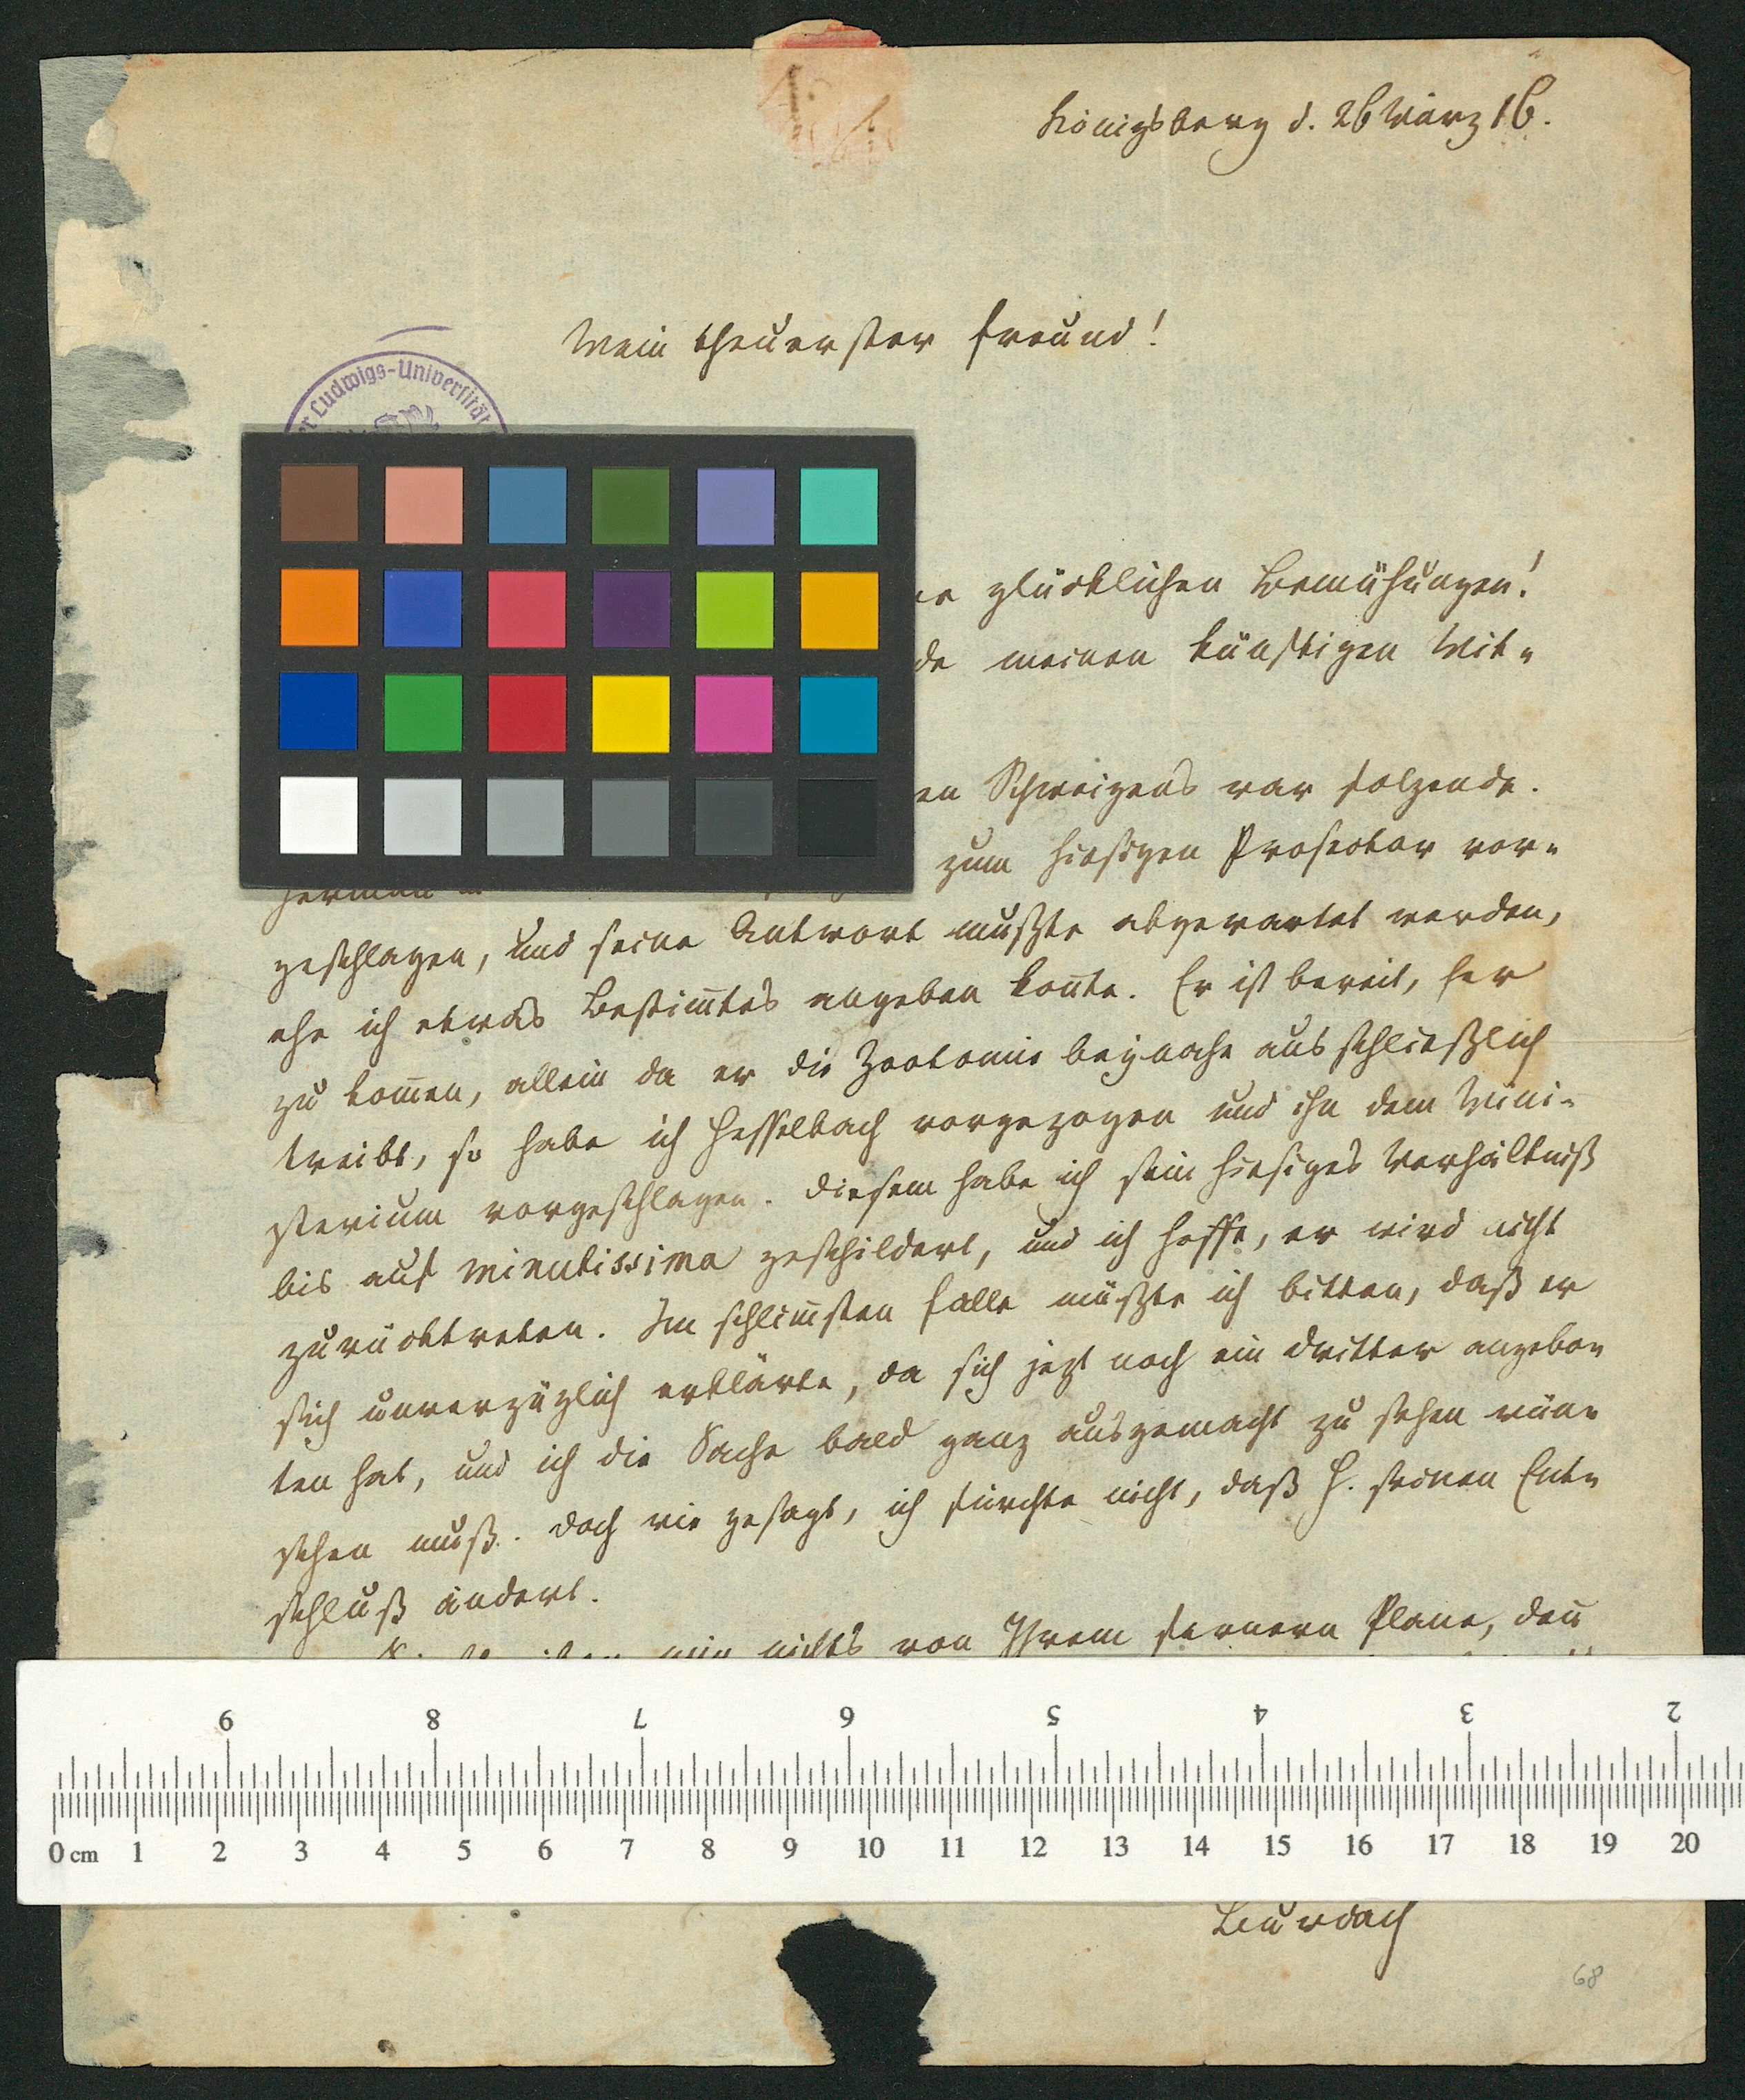 Königsberg d. 26 März 16.
Mein theuerster Freund!
er Ludwigs-Universität
glücklichen Bemühungen!
meinen künftigen Mit-
en Schweigens war folgende.
zum hiesigen Prosector vor-
geschlagen, und seine Antwort mußte abgewartet werden,
ehe ich etwas Bestim̄tes angeben kon̄te. Er ist bereit, her
zu kom̄en, allein da er die Zootomie beynahe ausschließlich
treibt, so habe ich Hesselbach vorgezogen und ihn dem Mini-
sterium vorgeschlagen. Diesem habe ich sein hiesiges Verhältniß
bis auf minutissima geschildert, und ich hoffe, er wird nicht
zurücktreten. Im schlim̄sten Falle müßte ich bitten, daß er
sich unverzüglich erklärte, da sich jezt noch ein dritter angebo-
ten hat, und ich die Sache bald ganz ausgemacht zu sehen wün-
schen muß. Doch wie gesagt, ich fürchte nicht, daß H. seinen Ent-
schluß ändert.
mir nichts von Ihrem fernern Plane, den̄
9 8 7 6 5 4 3 2
0 cm 1 2 3 4 5 6 7 8 9 10 11 12 13 14 15 16 17 18 19 20
Burdach
68